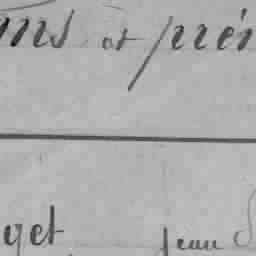 ms et prén
get Jean